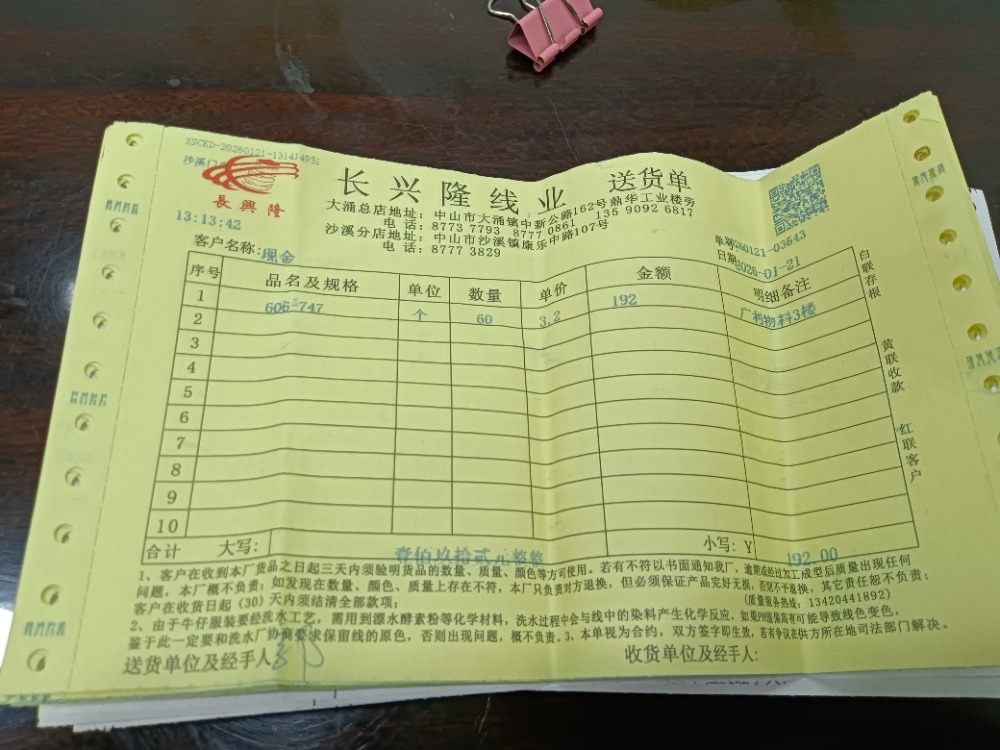 XSCKD-20260121-131414951
沙溪门
長興隆
13:13:42
长兴隆线业 送货单
大涌总店地址：中山市大涌镇中新公路162号鼎华工业楼旁
电 话：8773 7793 8777 0861 135 9092 6817
沙溪分店地址：中山市沙溪镇康乐中路107号
电 话：8777 3829
单号 260121-03543
客户名称：现金
日期 2026-01-21
序号 品名及规格 单位 数量 单价 金额 明细备注
1 606-747 个 60 3.2 192 广利物料3楼
2
3
4
5
6
7
8
9
10
合计 大写：壹佰玖拾贰元整整 小写：Y 192.00
白联存根
黄联收款
红联客户
1、客户在收到本厂货品之日起三天内须验明货品的数量、质量、颜色等方可使用。若有不符以书面通知我厂，逾期或经过加工成型后质量出现任何
问题，本厂概不负责；如发现在数量、颜色、质量上存在不符，本厂只负责对方退换，但必须保证产品完好无损，否则不予退换，其它责任恕不负责；
客户在收货日起（30）天内须结清全部款项； （质量服务热线：13420441892）
2、由于牛仔服装要经洗水工艺，需用到漂水酵素粉等化学材料，洗水过程中会与线中的染料产生化学反应，如果PH值偏高有可能导致线色变色，
鉴于此一定要和洗水厂协商要求保留线的原色，否则出现问题，概不负责。3、本单视为合约，双方签字即生效，若有争议在供方所在地司法部门解决。
送货单位及经手人： 收货单位及经手人：